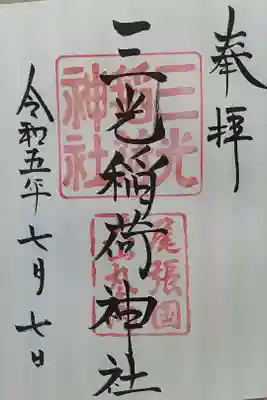 奉拝
三光稲荷神社
令和五年七月七日
三光
稲荷
神社
尾張国